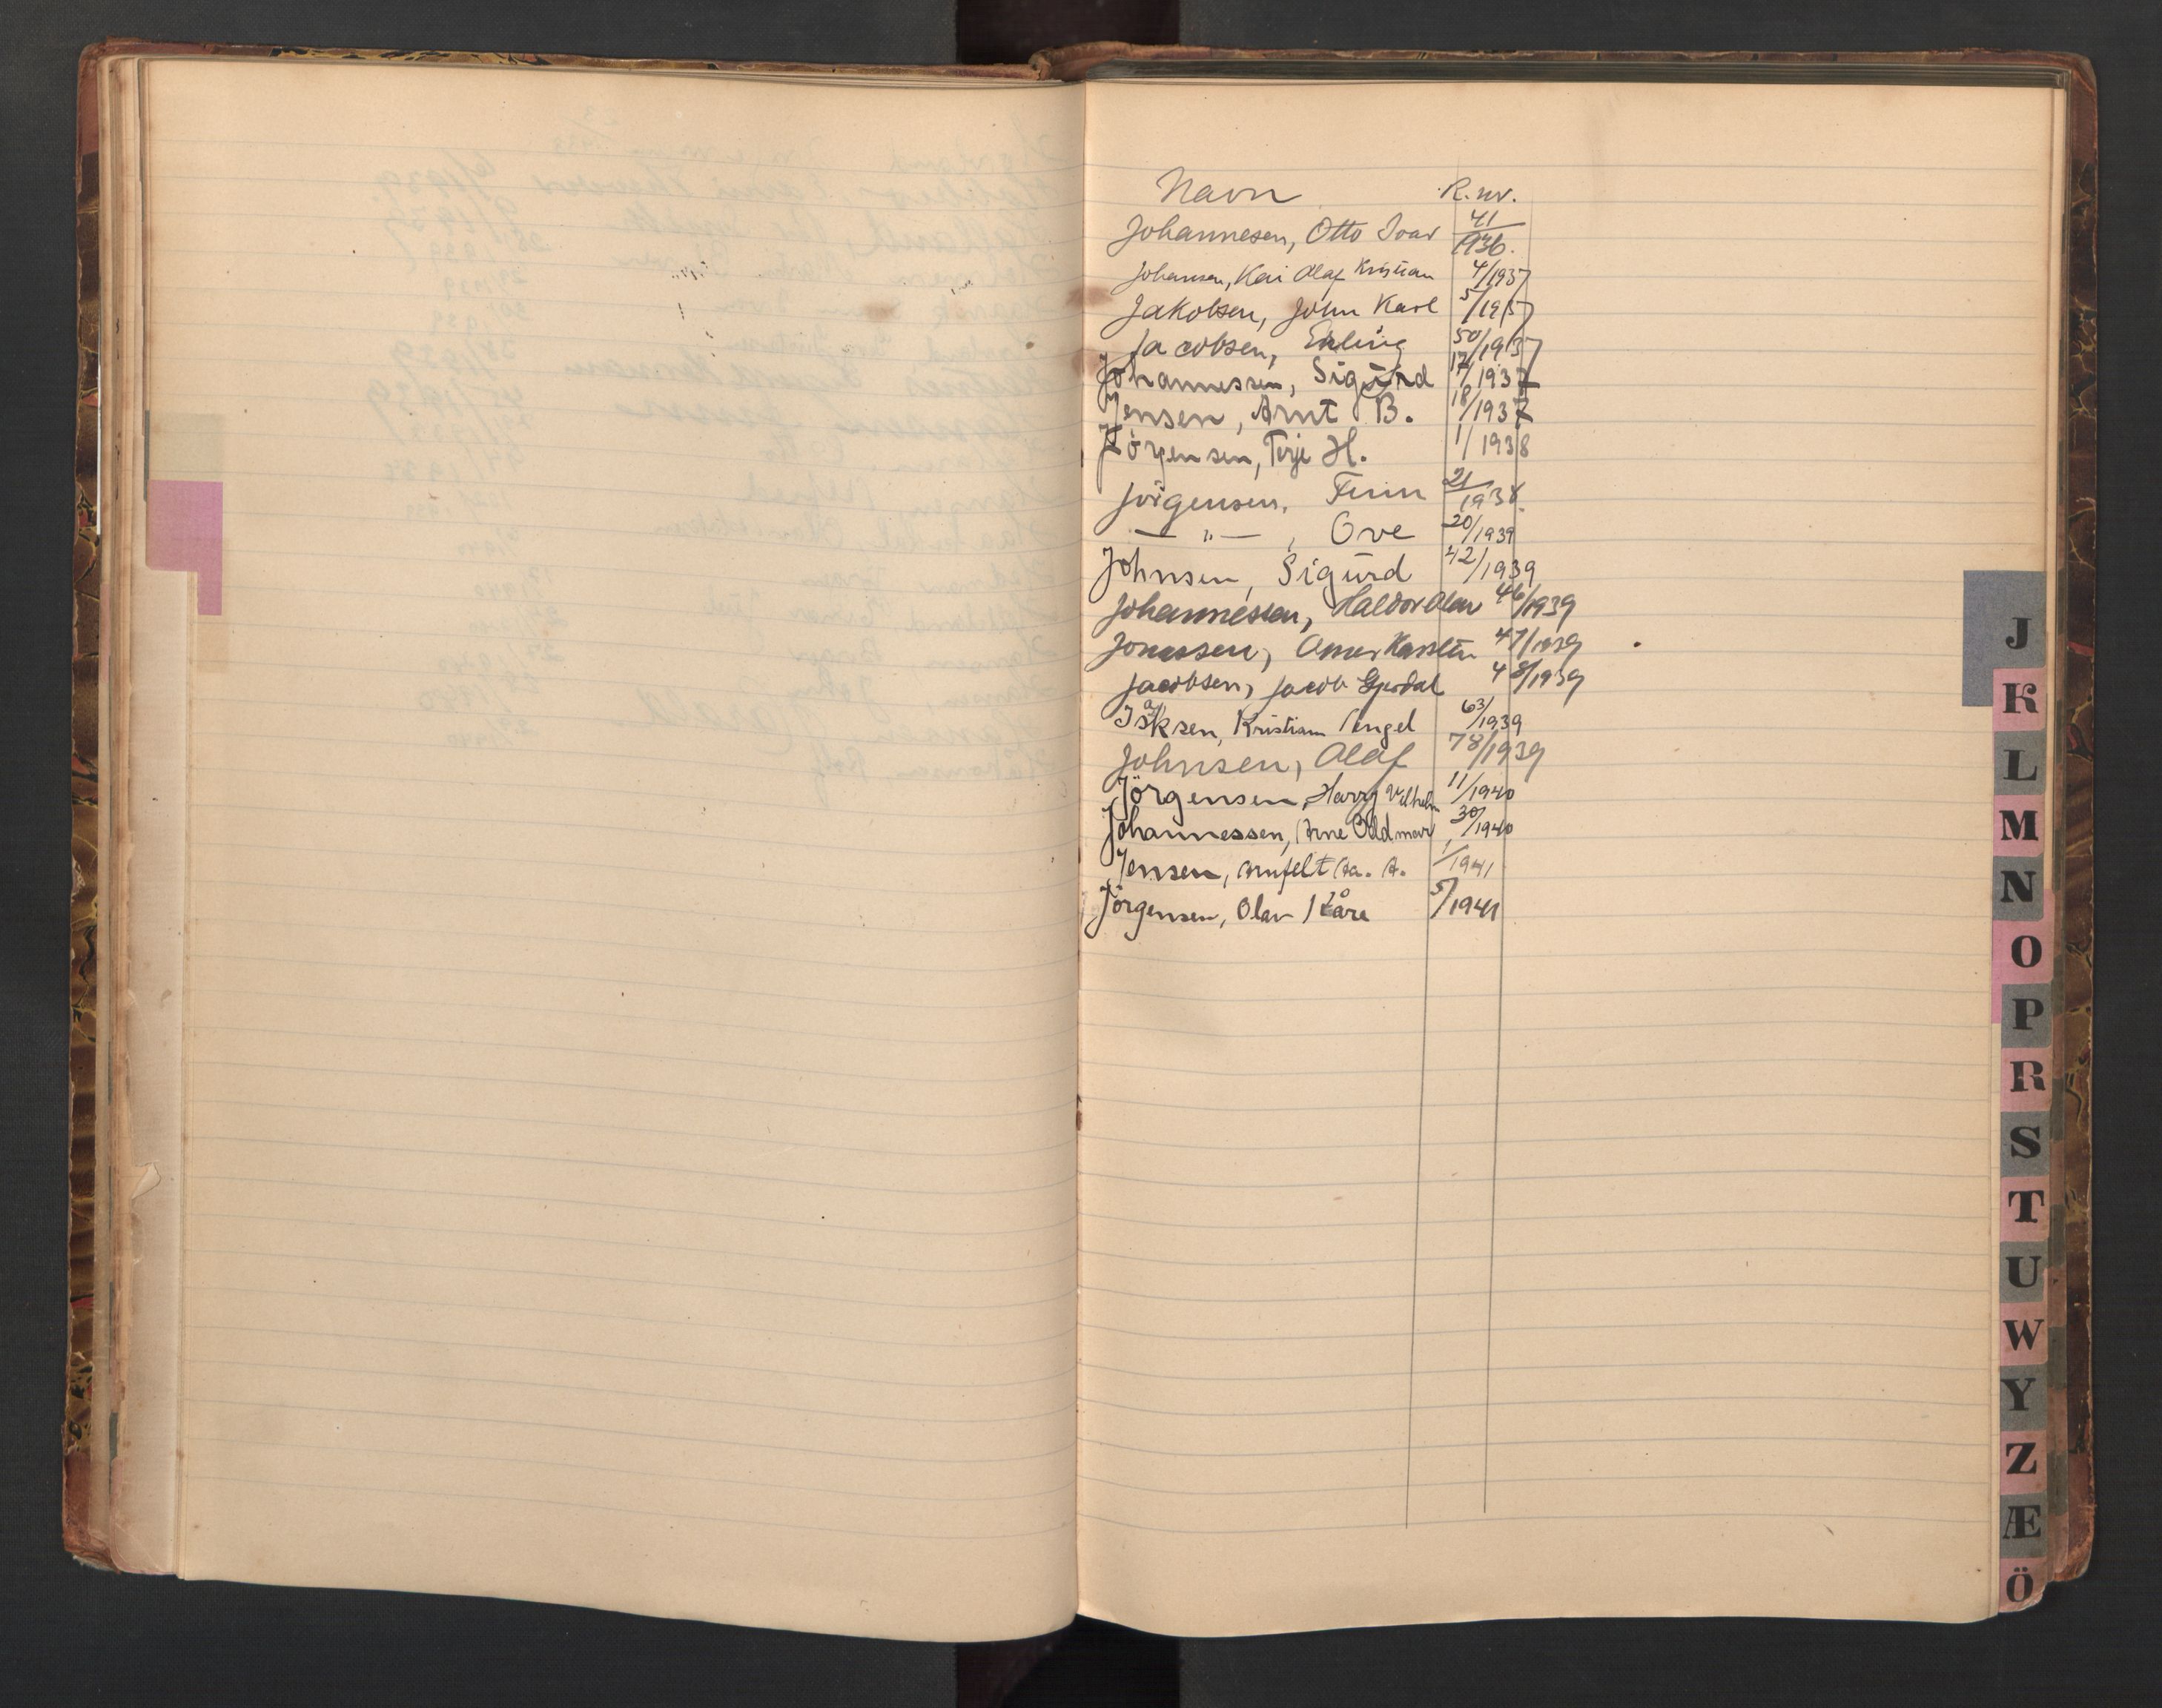 Navn R.nr.
Johannesen, Otto Ivar 41/1936.
Johansen, Kai Olaf Kristian 4/1937
Jakobsen, John Karl 5/1937
Jacobsen, Erling 50/1937
Johannessen, Sigurd 17/1937
Jensen, Arnt B. 18/1937
Jörgensen, Terje H. 1/1938
Jörgensen, Finn 21/1938.
— " — , Ove 20/1939
Johnsen, Sigurd 42/1939
Johannessen, Haldor Olav 46/1939
Jonassen, Karsten 47/1939
Jacobsen, Jacob 48/1939
Isaksen, Kristian Engel 63/1939
Johnsen, Olaf 78/1939
Jörgensen, Harry Vilhelm 11/1940
Johannessen, Arne Oddmar 30/1940
Jensen, Arnfelt Aa. A. 1/1941
Jörgensen, Olav Kåre 5/1941
J
K
L
M
N
O
P
R
S
T
U
W
Y
Z
Æ
Ö